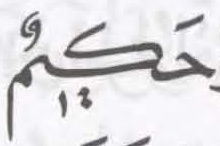 حَكِيمٌ
١٤